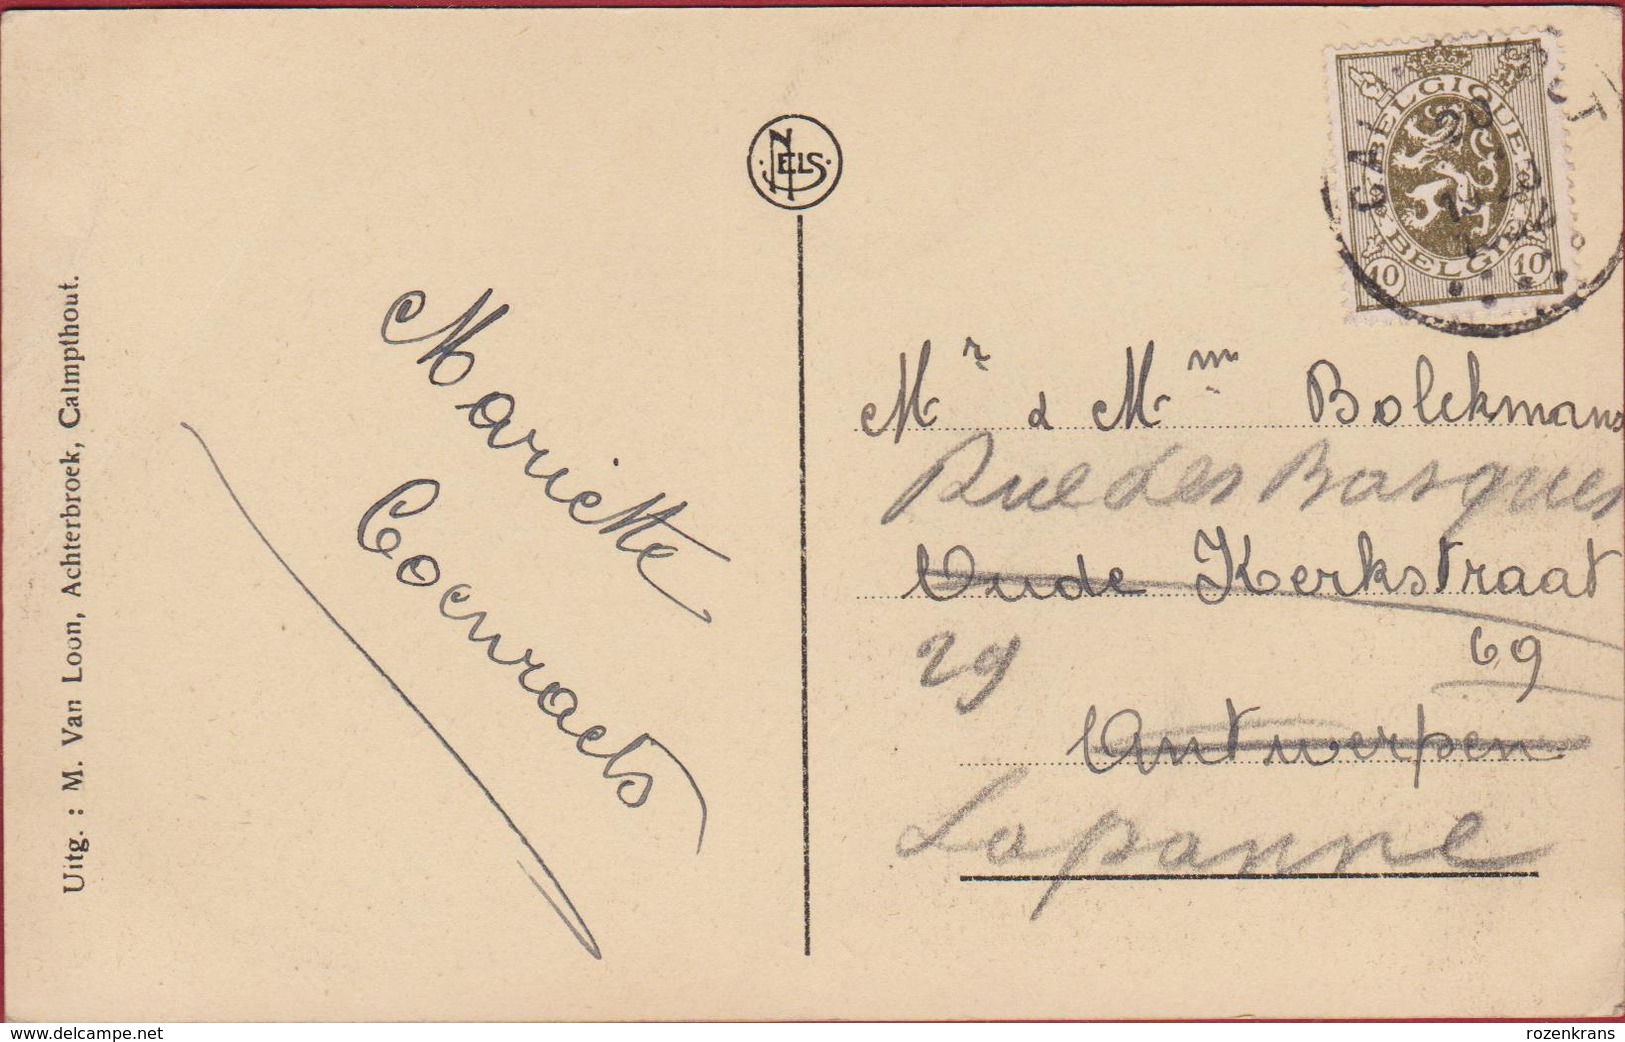 Uitg. : M. Van Loon, Achterbroek, Calmpthout.
NELS
Mariette
Coenraets
BELGIQUE
BELGIE
10 10
Mr & Mme Bolckmans
Rue des Basques
Oude Kerkstraat
29
69
Antwerpen
Lapanne
delcampe.net
rozenkrans